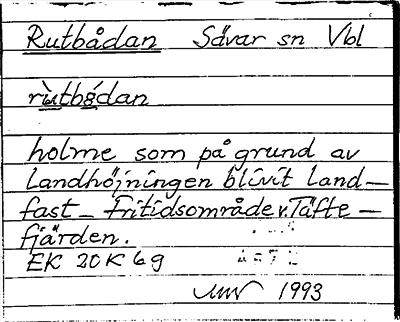 Rutbådan Sävar sn Vbl
rùtbǻdan
holme som på grund av
landhöjningen blivit land-
fast - Fritidsområde v. Täfte-
fjärden.
EK 20K 6g
1993